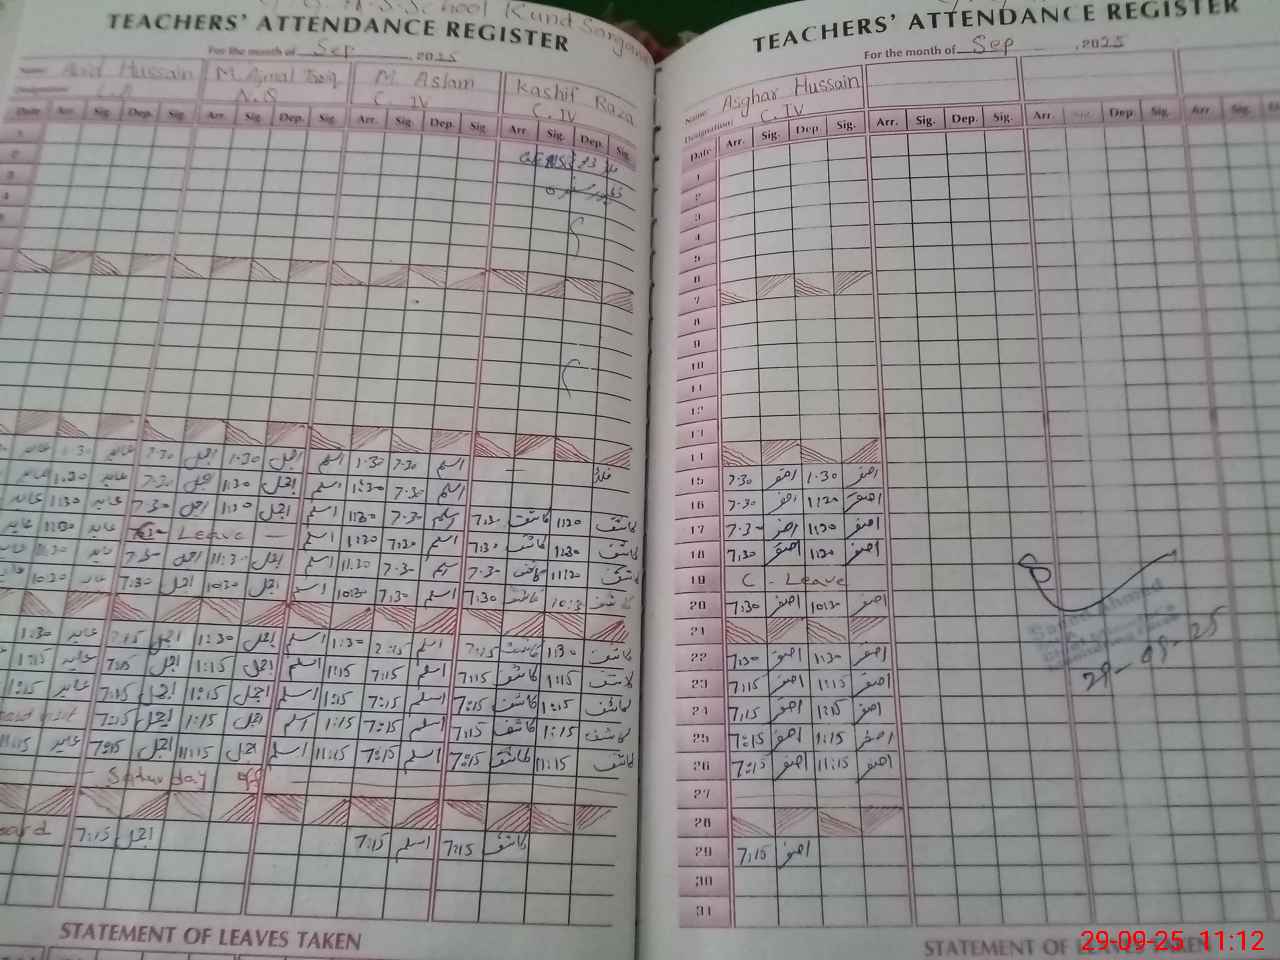 G. G. H. S. School Kund Sargana
TEACHERS' ATTENDANCE REGISTER
For the month of Sep , 2025
Name Hussain M. Ajmal Tariq M. Aslam Kashif Raza
Designation N.Q C. IV C. IV
Date Arr. Sig. Dep. Sig. Arr. Sig. Dep. Sig. Arr. Sig. Dep. Sig. Arr. Sig. Dep. Sig.
1
2
3
4
5
عابد 1:30 عابد 7:30 اجمل 1:30 اجمل اسلم 1:30 7:30 اسلم
عابد 1:30 عابد 7:30 اجمل 1:30 اجمل اسلم 1:30 7:30 اسلم
عابد 1:30 عابد 7:30 اجمل 1:30 اجمل اسلم 1:30 7:30 اسلم 7:30 کاشف 1:30 کاشف
عابد 1:30 عابد Leave اسلم 1:30 7:30 اسلم 7:30 کاشف 1:30 کاشف
11:30 عابد 7:30 اجمل 11:30 اجمل اسلم 11:30 7:30 اسلم 7:30 کاشف 11:30 کاشف
10:30 عابد 7:30 اجمل 10:30 اجمل اسلم 10:30 7:30 اسلم 7:30 کاشف 10:3 کاشف
1:30 عابد 7:15 اجمل 1:30 اجمل اسلم 1:30 7:15 اسلم 7:15 کاشف 1:30 کاشف
1:15 عابد 7:15 اجمل 1:15 اجمل اسلم 1:15 7:15 اسلم 7:15 کاشف 1:15 کاشف
1:15 عابد 7:15 اجمل 1:15 اجمل اسلم 1:15 7:15 اسلم 7:15 کاشف 1:15 کاشف
visit 7:15 اجمل 1:15 اجمل اسلم 1:15 7:15 اسلم 7:15 کاشف 1:15 کاشف
11:15 عابد 7:15 اجمل 11:15 اجمل اسلم 11:15 7:15 اسلم 7:15 کاشف 11:15 کاشف
Saturday off
7:15 اجمل 7:15 اسلم 7:15 کاشف
STATEMENT OF LEAVES TAKEN
TEACHERS' ATTENDANCE REGISTER
For the month of Sep , 2025
Name Asghar Hussain
Designation C. IV
Date Arr. Sig. Dep. Sig. Arr. Sig. Dep. Sig. Arr. Sig. Dep. Sig. Arr. Sig.
1
2
3
4
5
6
7
8
9
10
11
12
13
14
15 7:30 اصغر 1:30 اصغر
16 7:30 اصغر 1:30 اصغر
17 7:30 اصغر 1:30 اصغر
18 7:30 اصغر 1:30 اصغر
19 C - Leave
20 7:30 اصغر 10:30 اصغر
21
22 7:30 اصغر 1:30 اصغر
23 7:15 اصغر 1:15 اصغر
24 7:15 اصغر 1:15 اصغر
25 7:15 اصغر 1:15 اصغر
26 7:15 اصغر 11:15 اصغر
27
28
29 7:15 اصغر
30
31
Ahmed
29-09-25
STATEMENT OF LEAVES TAKEN
29-09-25 11:12